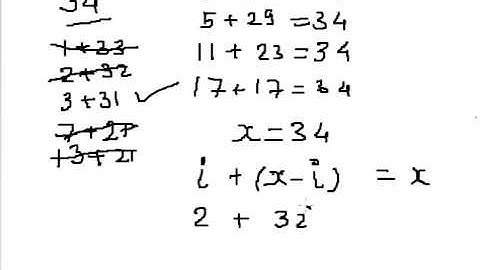 34
1+33
2+32
3+31 ✓
7+27
13+21
5+29=34
11+23=34
17+17=34
x=34
i+(x-i) =x
2 + 32